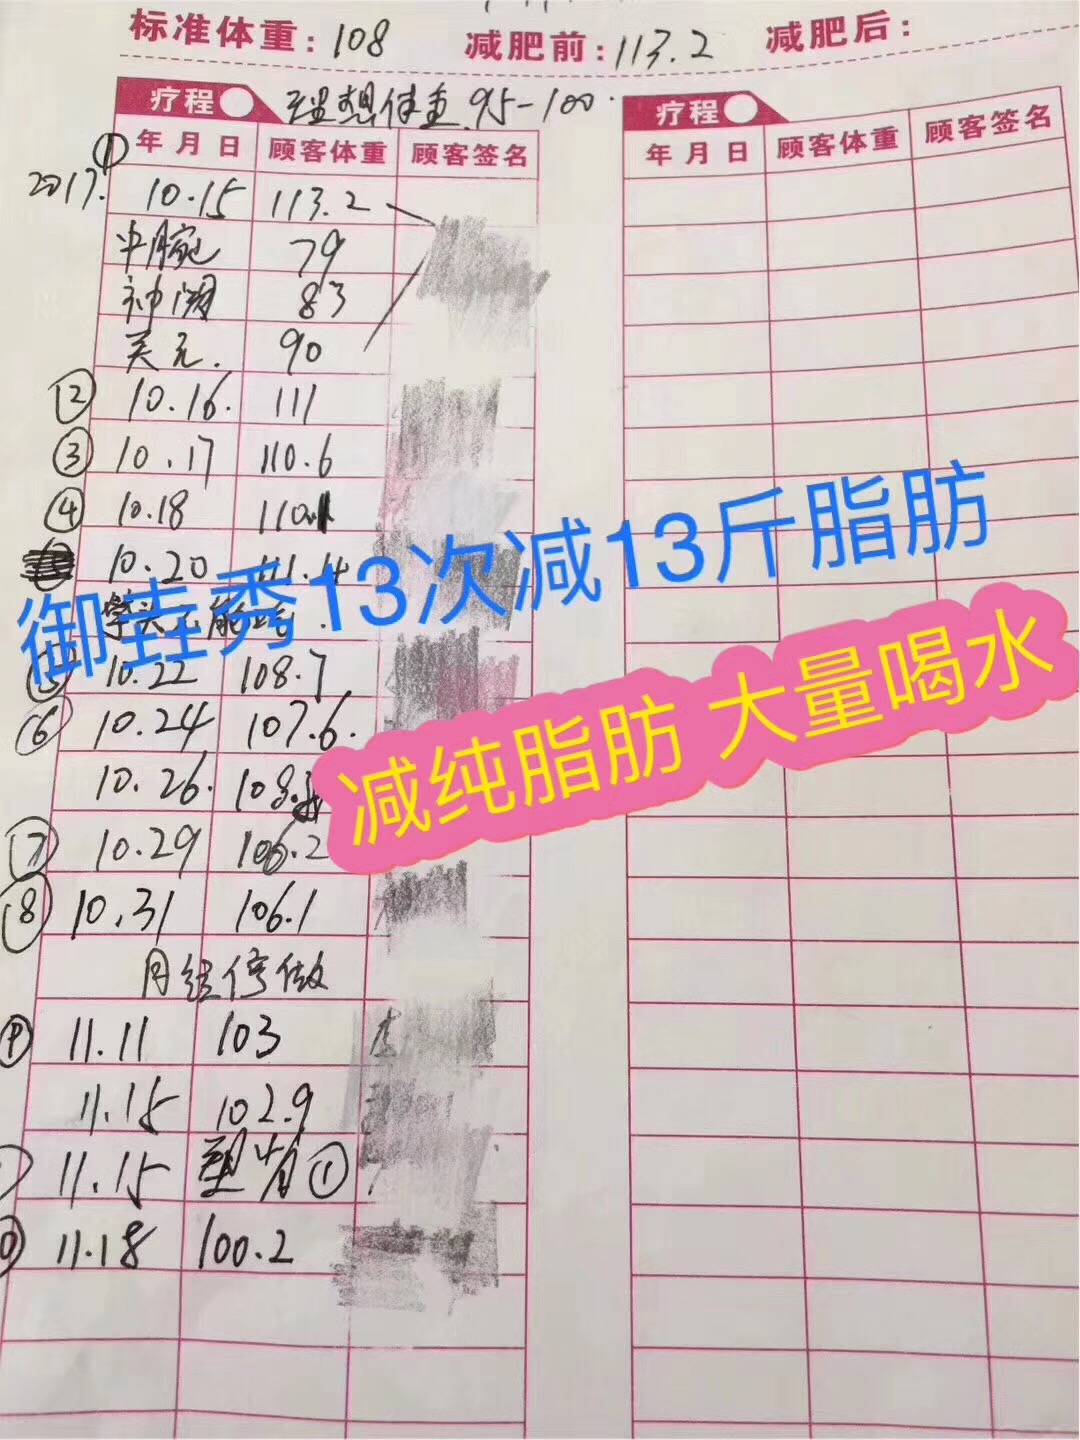 标准体重: 108 减肥前: 113.2 减肥后:
疗程 理想体重 95-100. 疗程
① 年月日 顾客体重 顾客签名 年月日 顾客体重 顾客签名
2017. 10.15 113.2
中脘 79
神阙 83
关元. 90
② 10.16. 111
③ 10.17 110.6
④ 10.18 110.1
10.20 111.4
御垚秀13次减13斤脂肪
⑤ 10.22 108.7
⑥ 10.24 107.6.
减纯脂肪 大量喝水
10.26. 108.
⑦ 10.29 106.2
⑧ 10.31 106.1
月经停做
11.11 103
11.15 102.9
11.15 ①
11.18 100.2